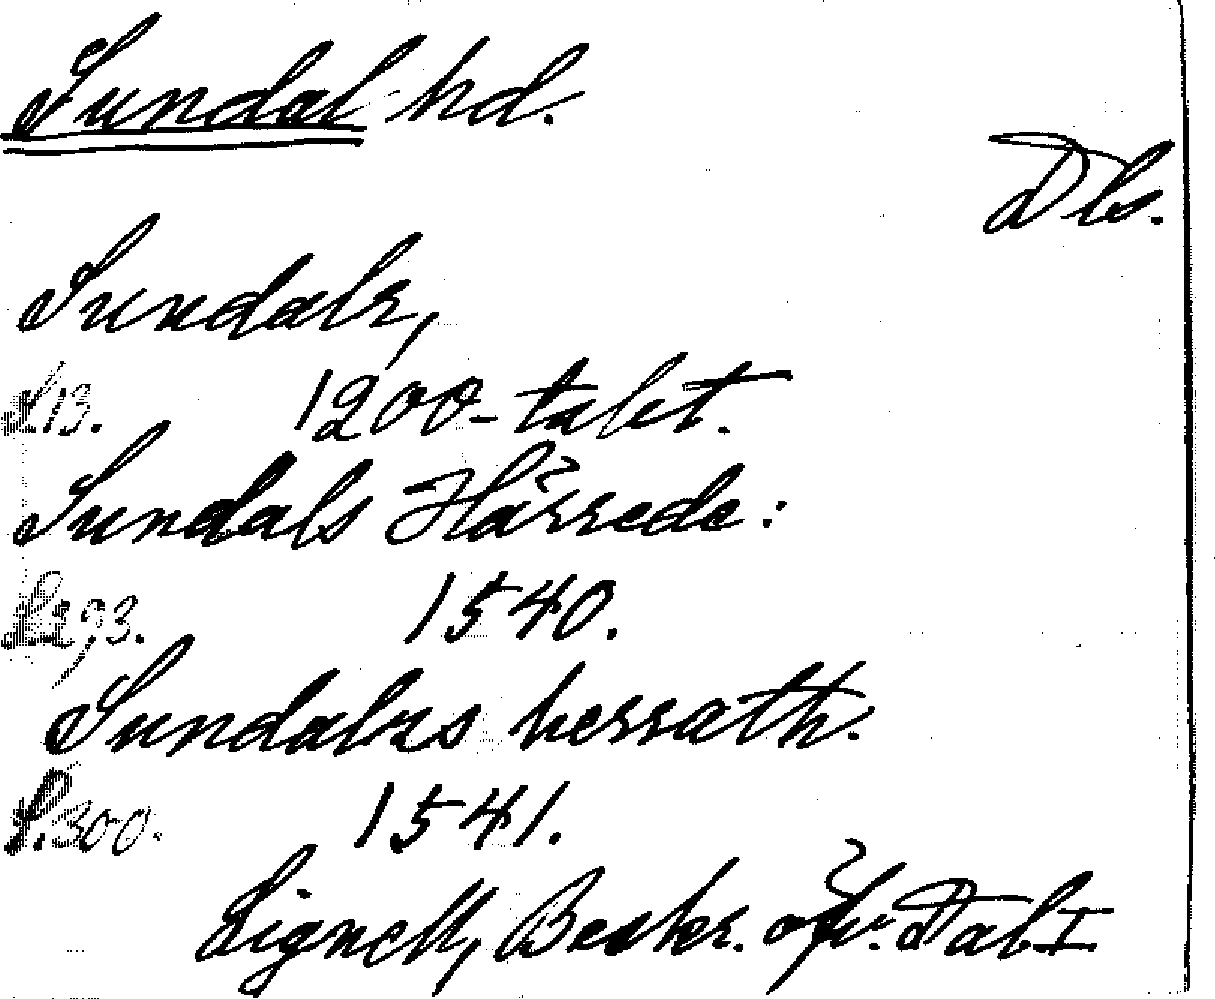 Sundal hd.
Dls.
Sundalr,
S. 13. 1200-talet.
Sundals Härrede:
S. 293. 1540.
Sundalss herrath.
S. 300. 1541.
Lignell, Beskr. öfv. Dal I